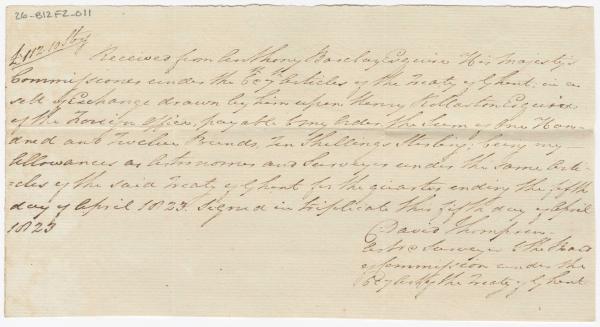 26-B12F2-011
£112.10 Stg
Received from Anthony Barclay Esquire His Majesty's
Commissioner under the 6 & 7th Articles of the Treaty of Ghent, in a
sett of Exchange drawn by him upon Henry Rolleston Esquire
of the Foreign Office, payable to my order the Sum of One Hun-
dred and Twelve Pounds, Ten Shillings Sterling; being my
allowances as Astronomer and Surveyor under the same Arti-
-cles of the said Treaty of Ghent for the quarter ending the fifth
day of April 1823. Signed in triplicate this fifth day of April
1823
David Thompson
Astr & Surveyor to the Board
of Commission under the
6 & 7 Art of the Treaty of Ghent